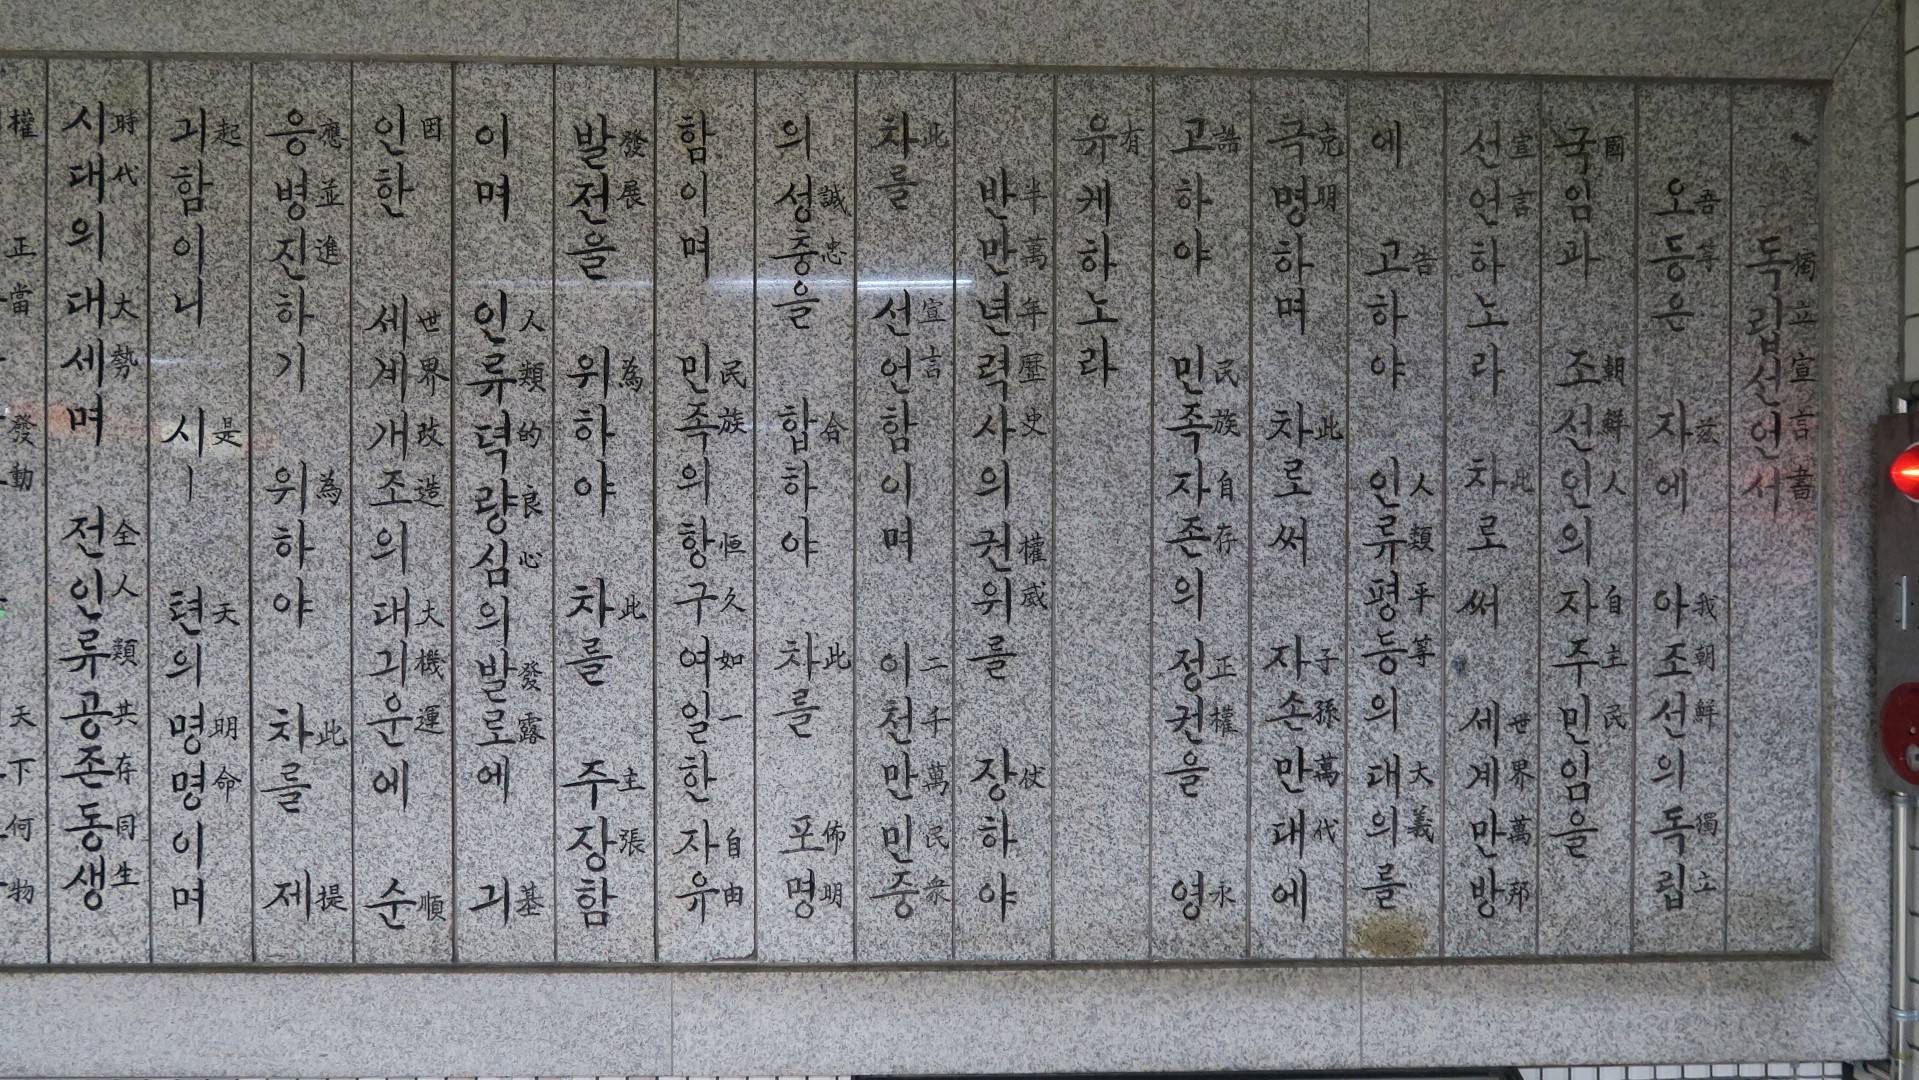 독립선언서
獨立宣言書
오등은 자에 아조선의 독립
吾等 玆 我朝鮮 獨立
국임과 조선인의 자주민임을
國 朝鮮人 自主民
선언하노라 차로써 세계만방
宣言 此 世界萬邦
에 고하야 인류평등의 대의를
告 人類平等 大義
극명하며 차로써 자손만대에
克明 此 子孫萬代
고하야 민족자존의 정권을 영
誥 民族自存 正權 永
유케하노라
有
반만년력사의 권위를 장하야
半萬年歷史 權威 仗
차를 선언함이며 이천만민중
此 宣言 二千萬民衆
의 성충을 합하야 차를 포명
誠忠 合 此 佈明
함이며 민족의 항구여일한 자유
民族 恒久如一 自由
발전을 위하야 차를 주장함
發展 為 此 主張
이며 인류뎍량심의 발로에 긔
人類的良心 發露 基
인한 세계개조의 대긔운에 순
因 世界改造 大機運 順
응병진하기 위하야 차를 제
應並進 為 此 提
긔함이니 시ㅣ 텬의 명명이며
起 是 天 明命
시대의 대세며 전인류공존동생
時代 大勢 全人類共存同生
權 正當 發動 天下何物